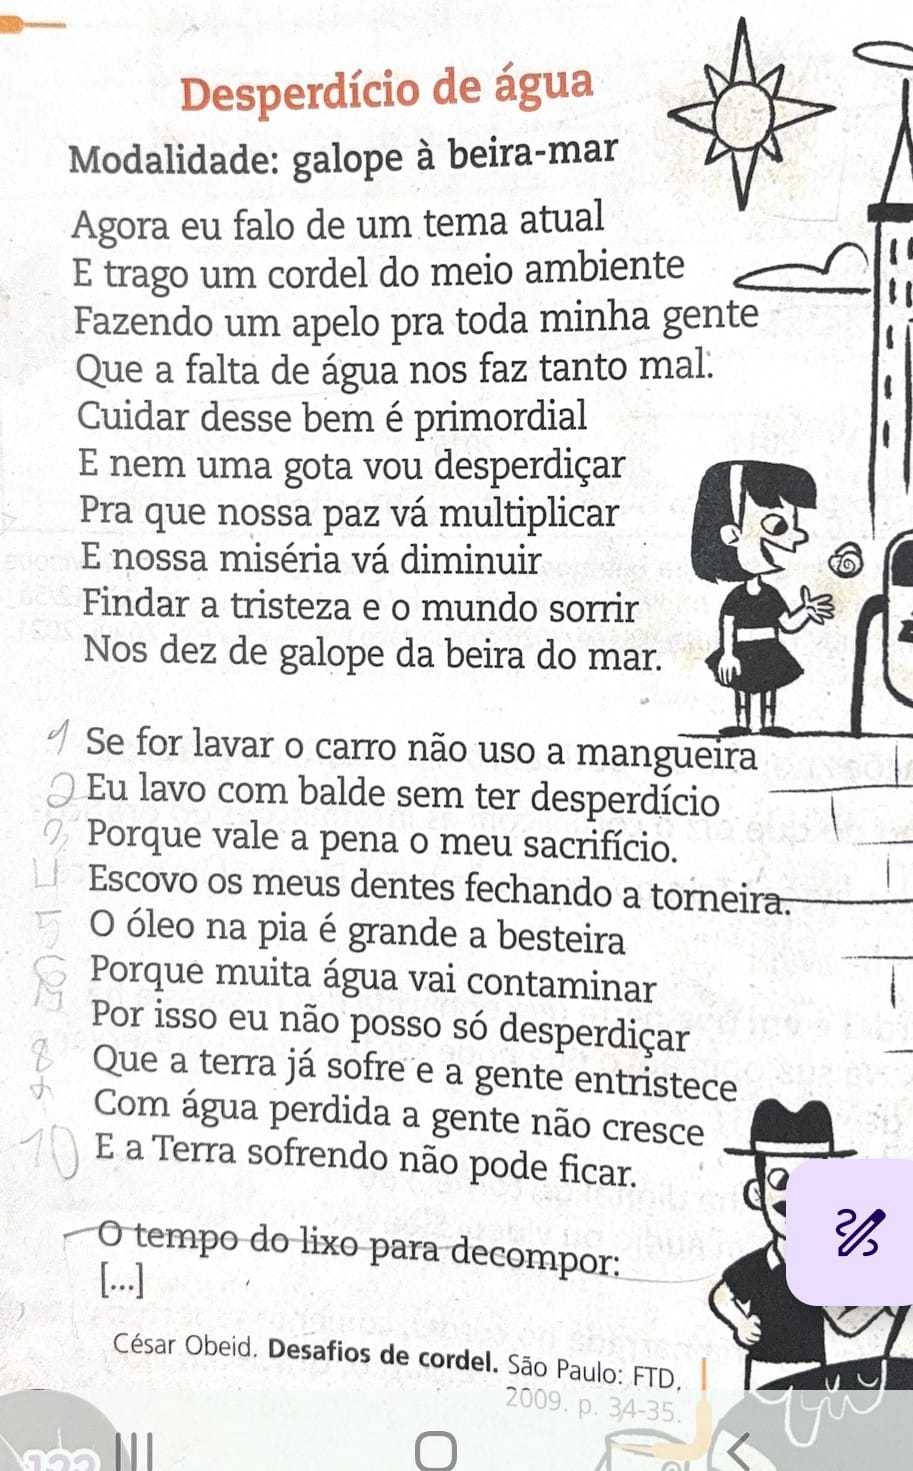 Desperdício de água
Modalidade: galope à beira-mar
Agora eu falo de um tema atual
E trago um cordel do meio ambiente
Fazendo um apelo pra toda minha gente
Que a falta de água nos faz tanto mal.
Cuidar desse bem é primordial
E nem uma gota vou desperdiçar
Pra que nossa paz vá multiplicar
E nossa miséria vá diminuir
Findar a tristeza e o mundo sorrir
Nos dez de galope da beira do mar.
1 Se for lavar o carro não uso a mangueira
2 Eu lavo com balde sem ter desperdício
3 Porque vale a pena o meu sacrifício.
4 Escovo os meus dentes fechando a torneira.
5 O óleo na pia é grande a besteira
6 Porque muita água vai contaminar
Por isso eu não posso só desperdiçar
8 Que a terra já sofre e a gente entristece
Com água perdida a gente não cresce
10 E a Terra sofrendo não pode ficar.
O tempo do lixo para decompor:
[...]
César Obeid. Desafios de cordel. São Paulo: FTD,
2009. p. 34-35.
122